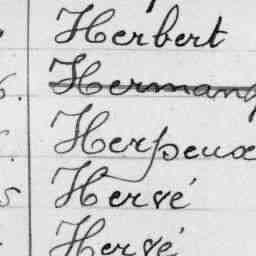 Herbert
Hermann
Herpeux
5 Hervé
Hervé